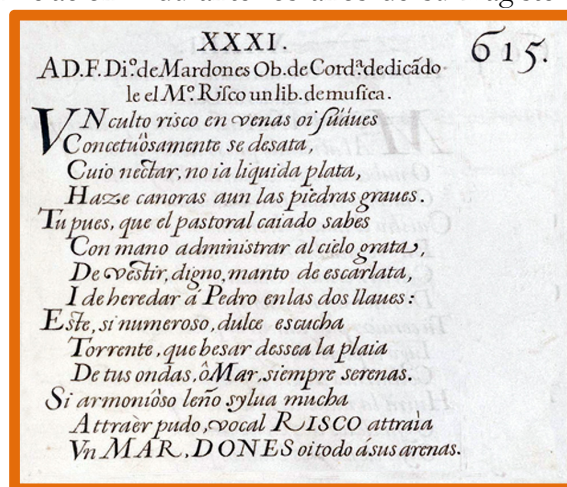 XXXI.
615.
A D. F. Di.º de Mardones Ob. de Cord.ª dedicãdo
le el M.º Risco un lib. de musica.
VN culto risco en venas oi súáues
Concetuôsamente se desata,
Cuio nectar, no ia liquida plata,
Hazе canoras aun las piedras graues.
Tu pues, que el pastoral caiado sabes
Con mano administrar al cielo grata,
De vestir, digno, manto de escarlata,
I de heredar á Pedro en las dos llaues:
Este, si numeroso, dulce escucha
Torrente, que besar dessea la plaia
De tus ondas, ô Mar, siempre serenas.
Si armoniôso leño sylua mucha
Attraèr pudo, vocal RISCO attraìa
Vn MAR, DONES oi todo á sus arenas.